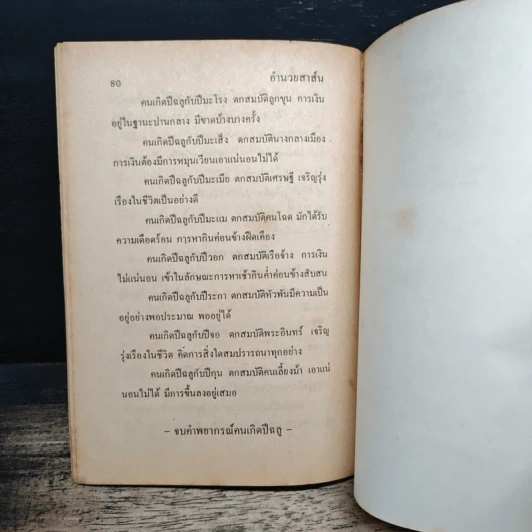 80 อำนวยสาส์น
คนเกิดปีฉลูกับปีมะโรง ตกสมบัติลูกขุน การเงิน
อยู่ในฐานะปานกลาง มีขาดบ้างบางครั้ง
คนเกิดปีฉลูกับปีมะเส็ง ตกสมบัตินางกลางเมือง
การเงินต้องมีการหมุนเวียนเอาแน่นอนไม่ได้
คนเกิดปีฉลูกับปีมะเมีย ตกสมบัติเศรษฐี เจริญรุ่ง
เรืองในชีวิตเป็นอย่างดี
คนเกิดปีฉลูกับปีมะแม ตกสมบัติคนโฉด มักได้รับ
ความเดือดร้อน การหากินค่อนข้างฝืดเคือง
คนเกิดปีฉลูกับปีวอก ตกสมบัติเรือจ้าง การเงิน
ไม่แน่นอน เข้าในลักษณะการหาเช้ากินค่ำค่อนข้างสับสน
คนเกิดปีฉลูกับปีระกา ตกสมบัติหัวพันมีความเป็น
อยู่อย่างพอประมาณ พออยู่ได้
คนเกิดปีฉลูกับปีจอ ตกสมบัติพระอินทร์ เจริญ
รุ่งเรืองในชีวิต คิดการสิ่งใดสมปรารถนาทุกอย่าง
คนเกิดปีฉลูกับปีกุน ตกสมบัติคนเลี้ยงม้า เอาแน่
นอนไม่ได้ มีการขึ้นลงอยู่เสมอ
– จบคำพยากรณ์คนเกิดปีฉลู –